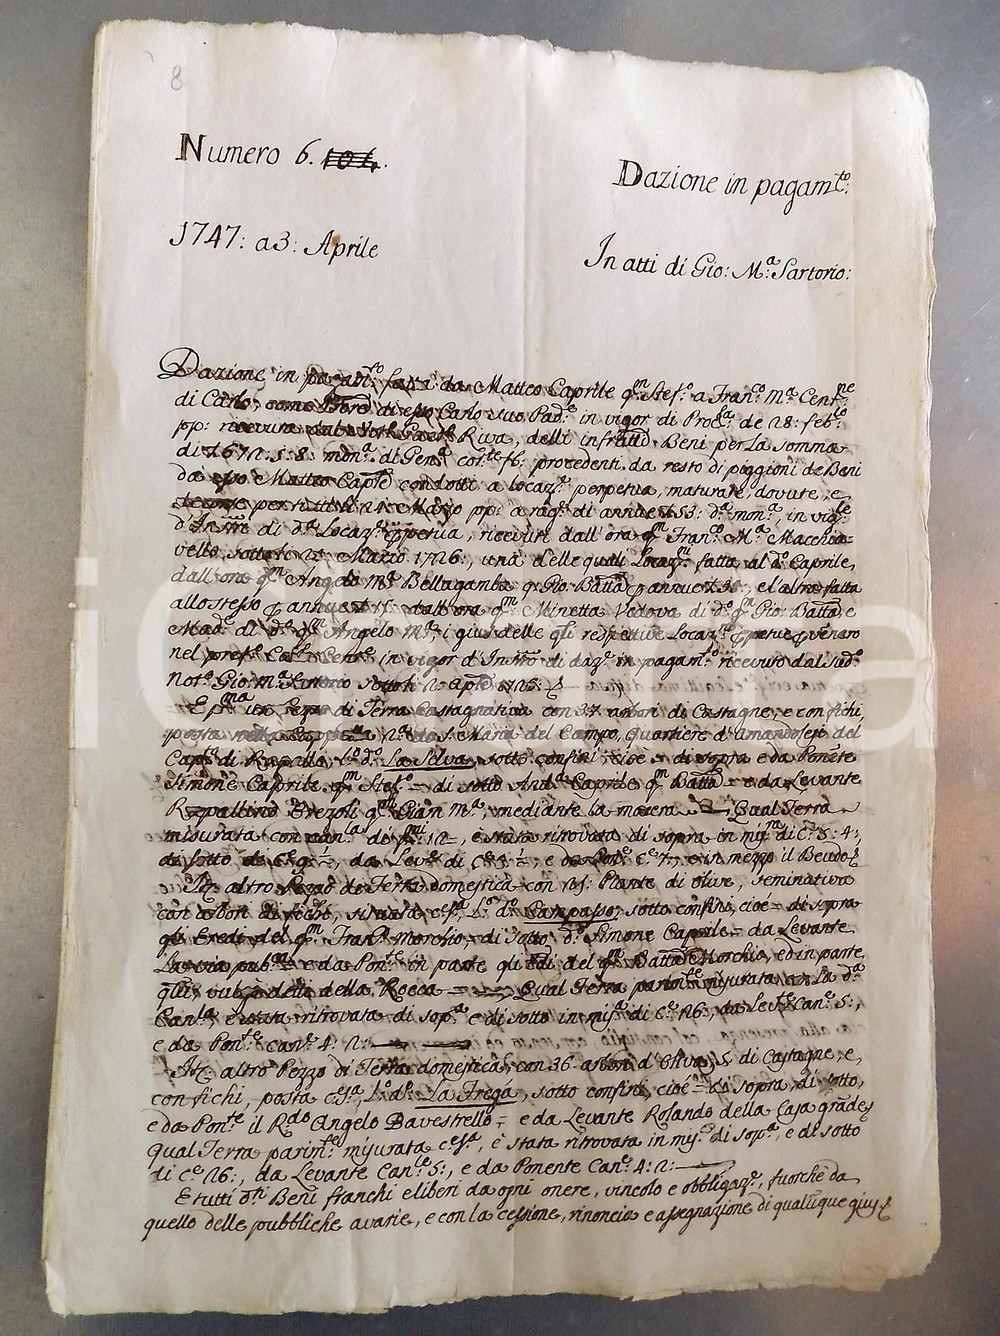 8
Numero 6. 104.
Dazione in pagam.to:
1747: a 3: Aprile
In atti di Gio: M.a Sartorio:
Dazione in pagam.to fatta da Matteo Caprile q.m Stef.o a Fran.co M.a Cent.ne
di Carlo, come di esso Carlo suo Pad.e in vigor di Proc.a de 28: feb.o
pp: ricevuta Riva, delli infratti Beni per la somma
di £ 672:5:8: mon.a di Gen.a cor.te f.b: procedenti da resto di piggioni de Beni
da esso Matteo Caprile condotti a locaz.e perpetua, maturate, dovute, e
decorse per tutti li 24 Marzo pp: a rag.e di annue £ 53: d.a mon.a, in vig.e
d'Instro di d.a Locaz.e perpetua, ricevuti dall'ora q.m Fran.co M.a Macchia-
vello sotto li Marzo 1726: una delle quali Locaz.ni fatta al d.o Caprile,
dall'ora q.m Angelo M.a Bellagamba q. Gio: Batta p annue £ 38: e l'altra fatta
allo stesso p annue £ 15: dall'ora q.m Minetta Vedova di d.o q.m Gio: Batta e
Mad.e di d.o q.m Angelo M.a; i gius delle q.li respettive Locaz.ni ppetue pvenero
nel pref.o Cent.ne in vigor d'Instro di daz.e in pagam.to ricevuto dal sud.o
Not.o Gio: M.a Sartorio sotto li 2 Aprile 1725:
E p.ma un Pezzo di Terra Castagnativa con 37 arbori di Castagne, e con fichi,
posta nella di S. Maria del Campo, Quartiere d'Amandolesi del
Cap.to di Rapallo, l.o d.o La Selva, sotto confini cioè = di sopra e da Ponente
Simone Caprile q.m Stef.o = di sotto And.a Caprile q.m Batta = e da Levante
Rapallino Erezoli q.m Gian M.a, mediante la macera = Qual Terra
misurata con can.a di p.mi 12 =, è stata ritrovata di sopra in mis.ra di C.e 5:4:,
di sotto di C.e 9:=, da Lev.e di C.e 4:=, e da Pon.e C.e 7:, e in mezzo il Beudo
It. altro Pezzo di Terra domestica con 15: Piante di olive, seminativa
con arbori di fichi, situata c.s.a l.o d.o Campasso, sotto confini, cioè = di sopra
gli Eredi del q.m Fran.co Morchio = di sotto d.o Simone Caprile = da Levante
La via pub.a = e da Pon.te in parte gli Edi del q.m Batta Morchio, ed in parte
quelli, vulgo detti della Rocca = Qual Terra parim.te misurata con La d.a
Can.la, è stata ritrovata di sop.a e di sotto in mis.a di C.e 16:, da Lev.e Can.e 5:,
e da Pon.te can.e 4:2:
It. altro Pezzo di Terra domestica, con 36 arbori d'Olive, & di Castagne, e,
con fichi, posta c.s.a, l.o d.o La Frega, sotto confini, cioè = di sopra, di sotto,
e da Pon.te il R.do Angelo Bavestrello = e da Levante Rolando della Casa grade
Qual Terra parim.te misurata c.s.a, è stata ritrovata in mis.a di sop.a, e di sotto
di C.e 26:, da Levante Can.e 5:, e da Ponente Can.e 4:2:
E tutti d.ti Beni franchi e liberi da ogni onere, vincolo e obbligaz.e, fuorche da
quello delle pubbliche avarie, e con la cessione, rinoncia e assegnazione di qualunque gius